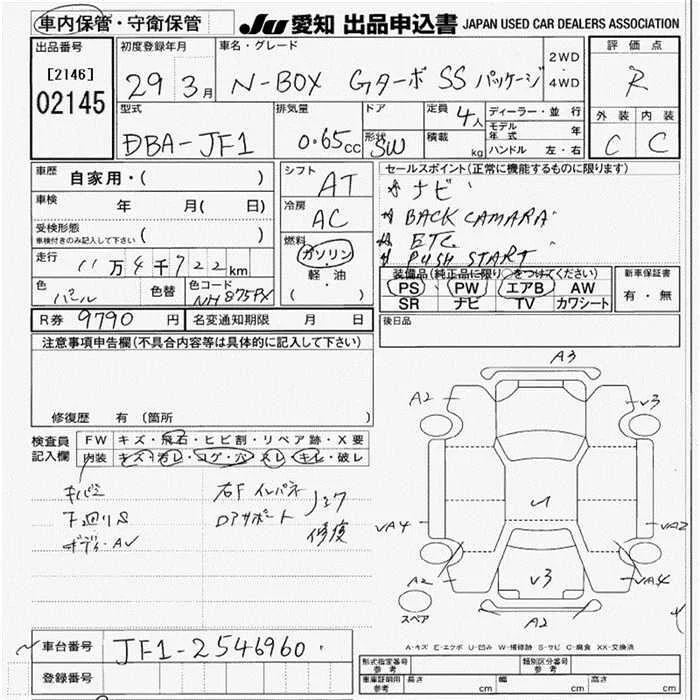 車内保管・守衛保管 JU 愛知 出品申込書 JAPAN USED CAR DEALERS ASSOCIATION
出品番号 [2146] 02145
初度登録年月 29 3月
車名・グレード N-BOX Gターボ SS パッケージ
2WD・4WD
評価点 R
外装 内装
C C
型式 DBA-JF1
排気量 0.65cc
ドア 形状 SW
定員 4人
積載 kg
ディーラー・並行
モデル年式 年
ハンドル 左・右
車歴 自家用・( )
車検 年 月( 日)
受検形態 車検付きのみ記入して下さい ( )
走行 11万4千722km
色 パール 色替 色コード NH875PX
シフト AT
冷房 AC
燃料 ガソリン・軽油
( )
セールスポイント(正常に機能するものに限ります)
ナビ
BACK CAMARA
ETC
PUSH START
装備品(純正品に限り○をつけてください)
PS PW エアB AW
SR ナビ TV カワシート
新車保証書
有・無
R券 9790円 名変通知期限 月 日
後日品
注意事項申告欄(不具合内容等は具体的に記入して下さい)
修復歴 有(箇所
検査員記入欄
FW キズ・飛石・ヒビ割・リペア跡・X要
内装 キズ・汚レ・コゲ・穴・スレ・キレ・破レ
キバミ
下廻りS
ボディAV
右Fインパネ
Dアサポート
修復
A3
A2 V3
U
VA4 VA2
A2 V3 VA4
A2
スペア
A-キズ E-エクボ U-凹み W-補修跡 S-サビ C-腐食 XX-交換済
車台番号 JF1-2546960
登録番号
形式指定番号 参考 類別区分番号 参考
車庫証明用 参考 長さ cm 幅 cm 高さ cm